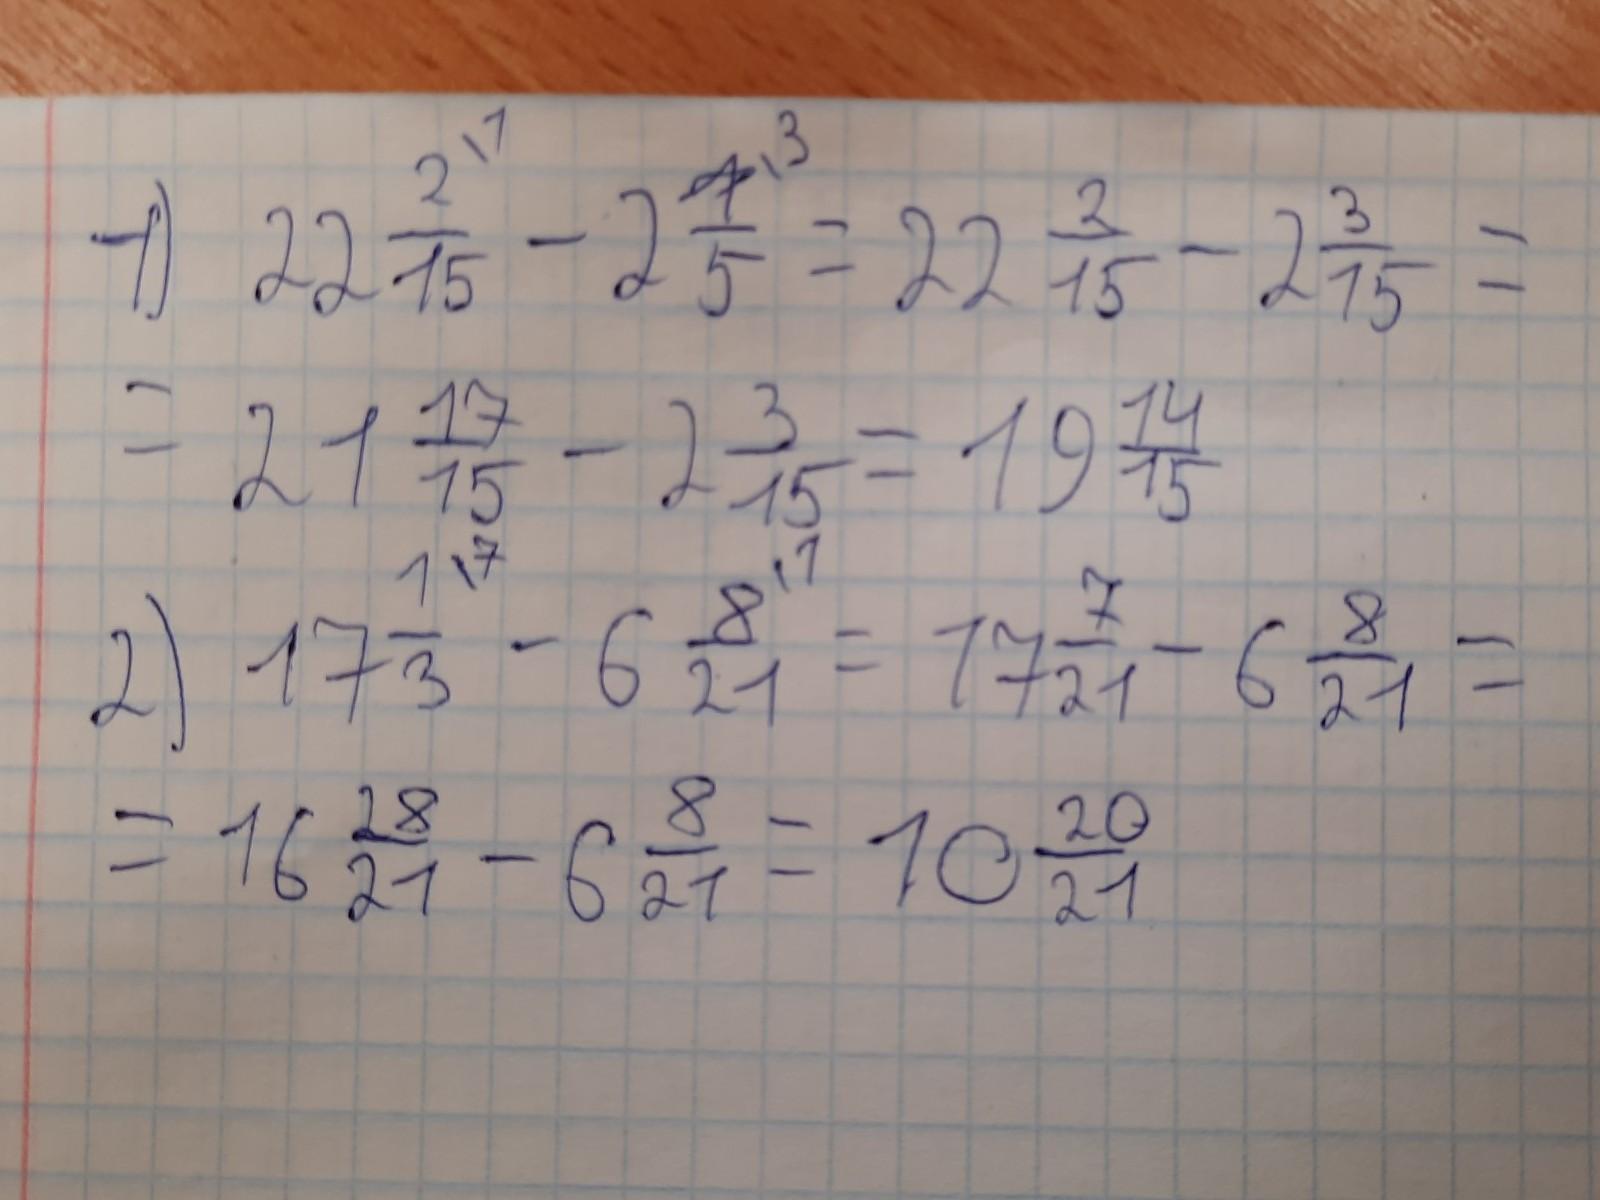 1) 22 2/15 \1 - 2 1/5 \3 = 22 2/15 - 2 3/15 =
= 21 17/15 - 2 3/15 = 19 14/15
2) 17 1/3 \7 - 6 8/21 \1 = 17 7/21 - 6 8/21 =
= 16 28/21 - 6 8/21 = 10 20/21